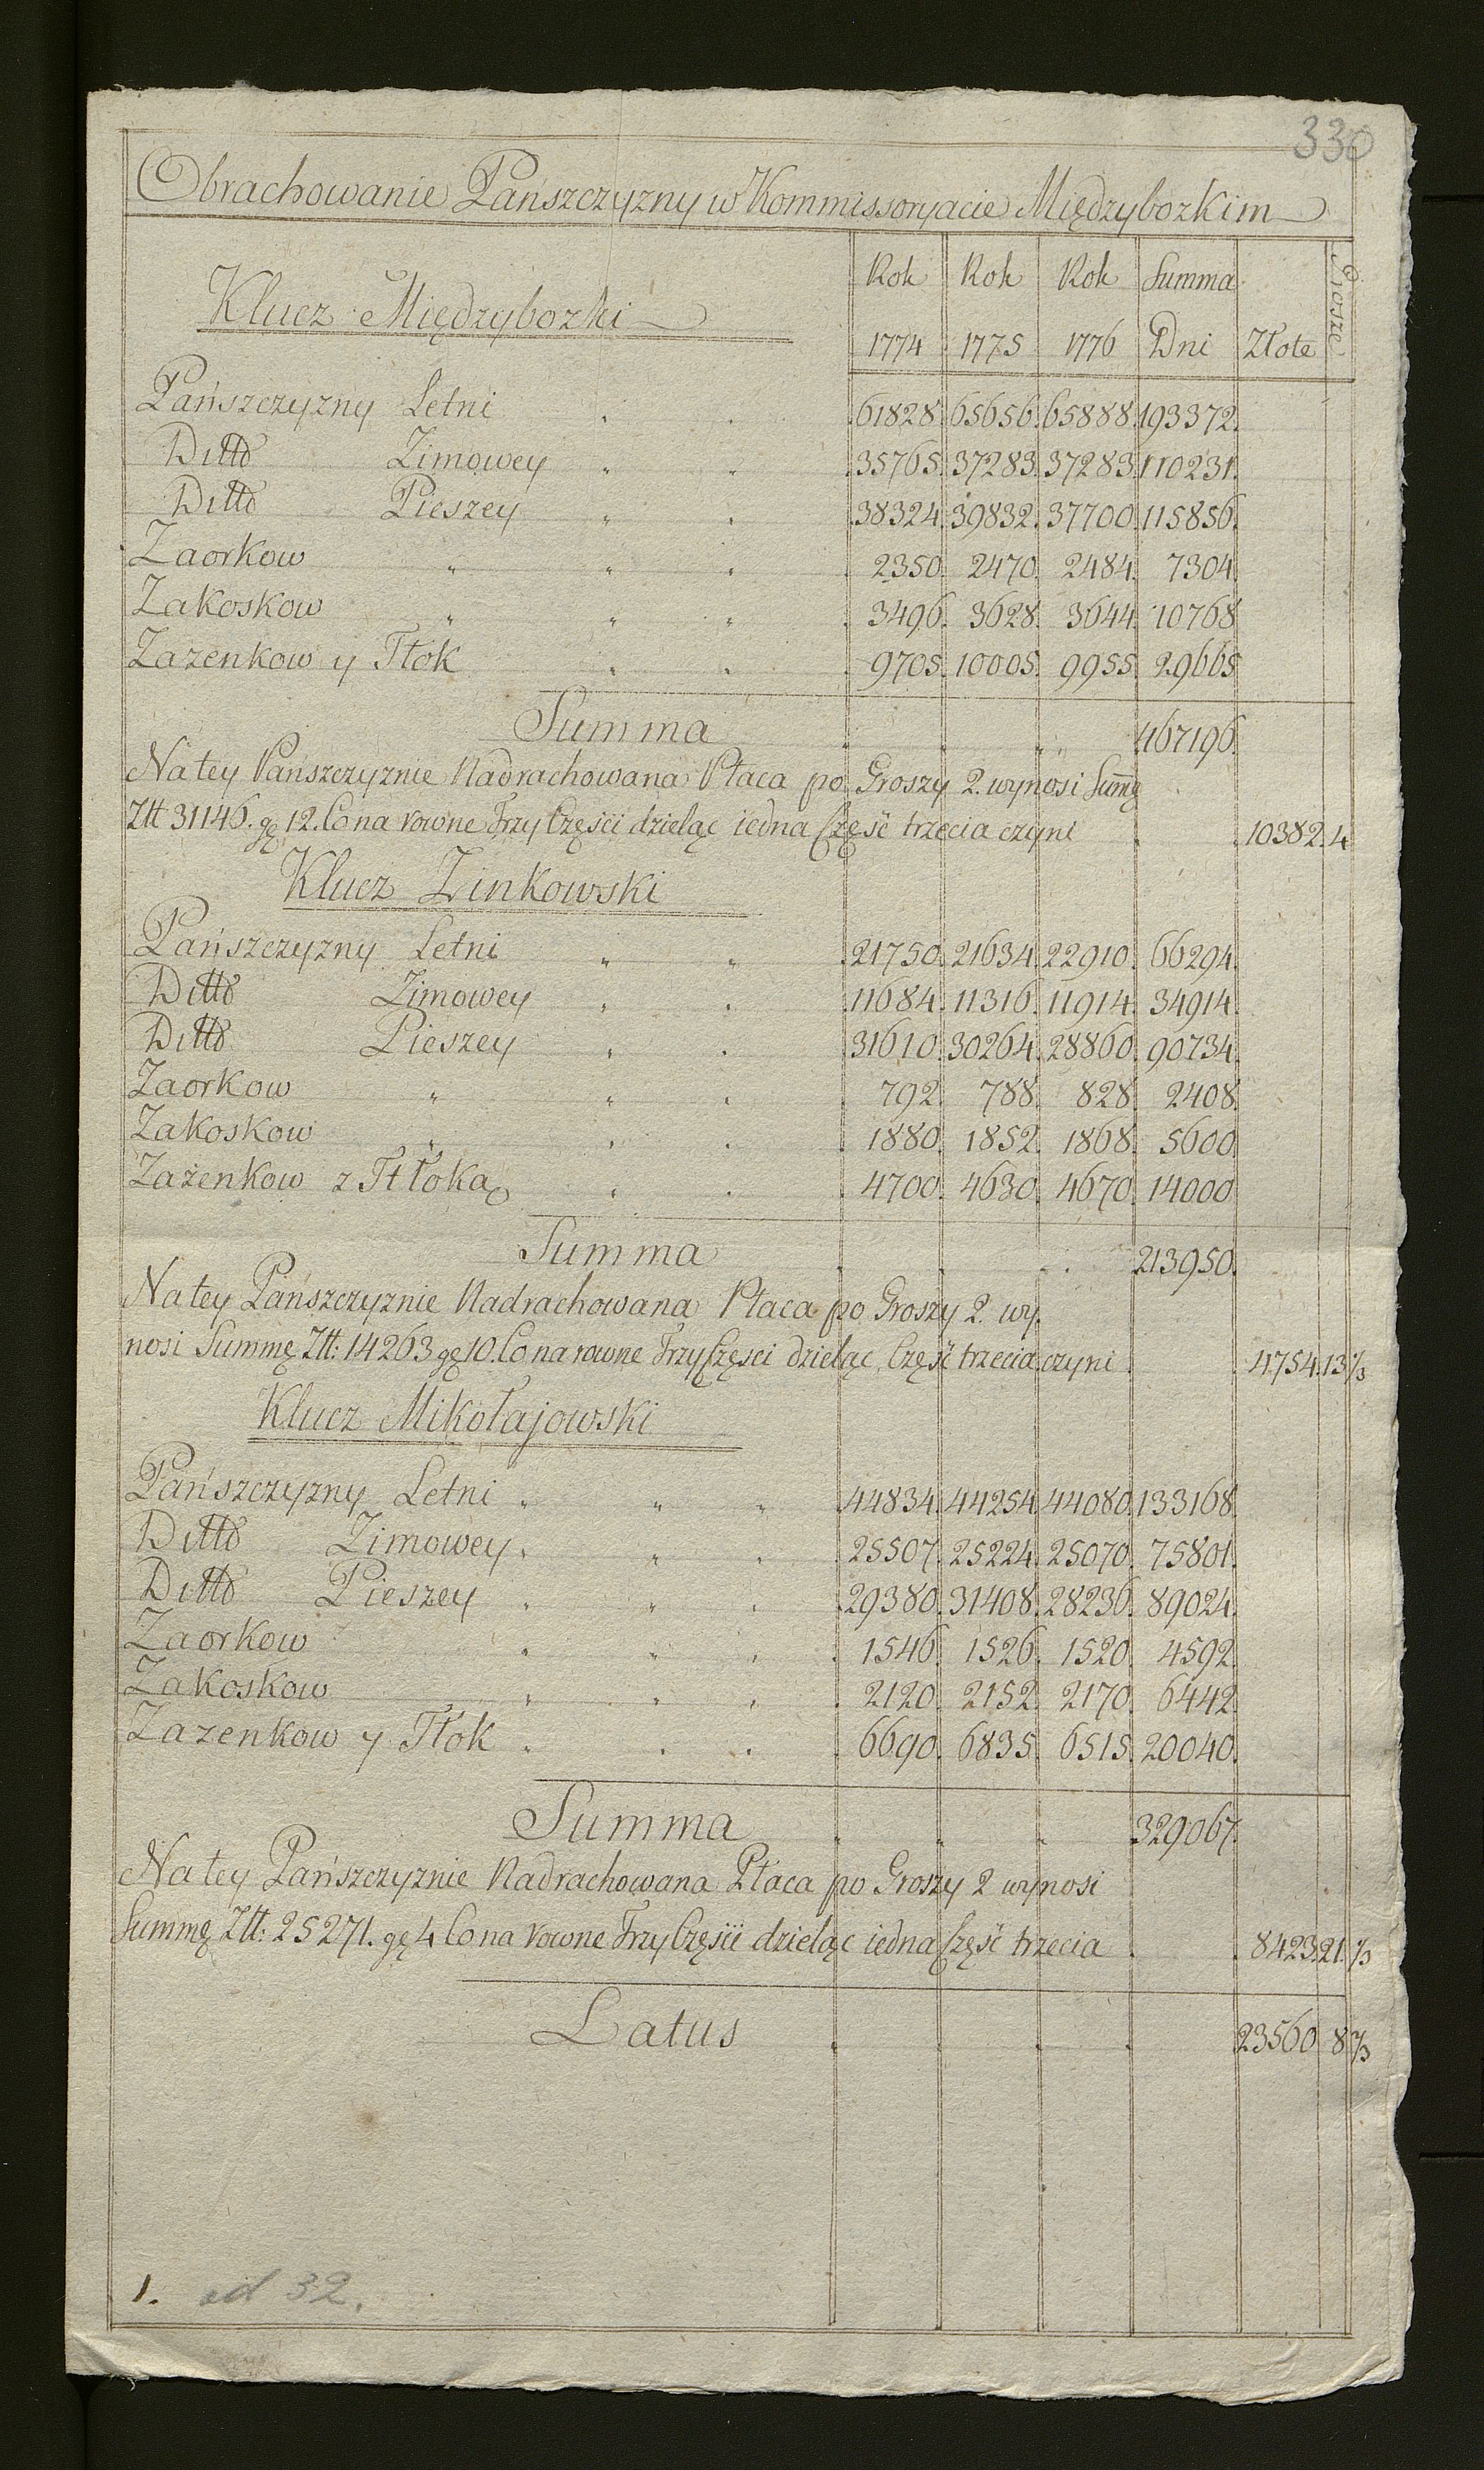 330
Obrachowanie Pańszczyzny w Kommissoryacie Międzybozkim
Klucz Międzybozki
Rok Rok Rok Summa Grosze
1774 1775 1776 Dni Złote
Pańszczyzny Letni 61828. 65656. 65888. 193372.
Ditto Zimowey 35765. 37283. 37283. 110231.
Ditto Pieszey 38324. 39832. 37700. 115856.
Zaorkow 2350. 2470. 2484. 7304.
Zakoskow 3496. 3628. 3644. 10768
Zazenkow y Tłok 9705. 10005. 9955. 29665
Summa 467196.
Na tey Pańszczyznie Nadrachowana Płaca po Groszy 2. wynosi Sum̄ę
Ztt 31146. gę 12. Co na rowne Trzy Części dzieląc iedna Część trzecia czyni 10382. 4
Klucz Zinkowski
Pańszczyzny Letni 21750. 21634. 22910. 66294.
Ditto Zimowey 11684. 11316. 11914. 34914.
Ditto Pieszey 31610. 30264. 28860. 90734.
Zaorkow 792. 788. 828. 2408.
Zakoskow 1880. 1852. 1868. 5600.
Zażenkow z Tłoką 4700. 4630. 4670. 14000
Summa 213950.
Na tey Pańszczyznie Nadrachowana Płaca po Groszy 2. wy.
nosi Summę Ztt: 14263 gę 10. Co na rowne Trzy Części dzieląc Część trzecia czyni 4754. 13 1/3
Klucz Mikołajowski
Pańszczyzny Letni 44834. 44254. 44080. 133168.
Ditto Zimowey 25507. 25224. 25070. 75801.
Ditto Pieszey 29380. 31408. 28236. 89024.
Zaorkow 1546. 1526. 1520. 4592.
Zakoskow 2120. 2152. 2170. 6442
Zazenkow y Tłok 6690. 6835. 6515. 20040.
Summa 329067.
Na tey Pańszczyznie Nadrachowana Płaca po Groszy 2 wynosi
Summę Ztt: 25271. gę 4 Co na rowne Trzy Części dzieląc iedna Część trzecia 8423. 21. 1/3
Latus 23560 8 2/3
1. ad 32.